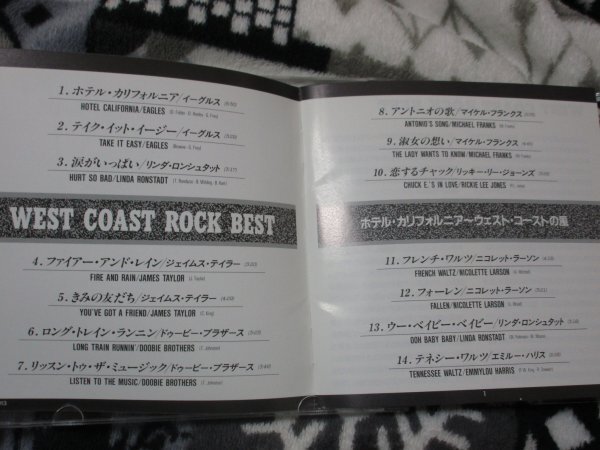 1. ホテル・カリフォルニア/イーグルス
HOTEL CALIFORNIA/EAGLES
2. テイク・イット・イージー/イーグルス
TAKE IT EASY/EAGLES
3. 涙がいっぱい/リンダ・ロンシュタット
HURT SO BAD/LINDA RONSTADT
WEST COAST ROCK BEST
4. ファイアー・アンド・レイン/ジェイムス・テイラー
FIRE AND RAIN/JAMES TAYLOR
5. きみの友だち/ジェイムス・テイラー
YOU'VE GOT A FRIEND/JAMES TAYLOR
6. ロング・トレイン・ランニン/ドゥービー・ブラザース
LONG TRAIN RUNNIN'/DOOBIE BROTHERS
7. リッスン・トゥ・ザ・ミュージック/ドゥービー・ブラザース
LISTEN TO THE MUSIC/DOOBIE BROTHERS
8. アントニオの歌/マイケル・フランクス
ANTONIO'S SONG/MICHAEL FRANKS
9. 淑女の想い/マイケル・フランクス
THE LADY WANTS TO KNOW/MICHAEL FRANKS
10. 恋するチャック/リッキー・リー・ジョーンズ
CHUCK E.'S IN LOVE/RICKIE LEE JONES
ホテル・カリフォルニア〜ウェスト・コーストの風
11. フレンチ・ワルツ/ニコレット・ラーソン
FRENCH WALTZ/NICOLETTE LARSON
12. フォーレン/ニコレット・ラーソン
FALLEN/NICOLETTE LARSON
13. ウー・ベイビー・ベイビー/リンダ・ロンシュタット
OOH BABY BABY/LINDA RONSTADT
14. テネシー・ワルツ/エミルー・ハリス
TENNESSEE WALTZ/EMMYLOU HARRIS
1